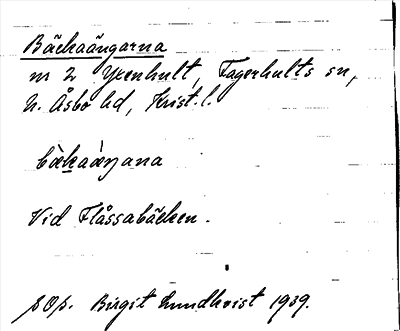 Bäckaängarna
m 2 Yxenhult, Fagerhults sn,
N. Åsbo hd, Krist. l.
Vid Flåssabäcken.
Birgit Lundkvist 1939.